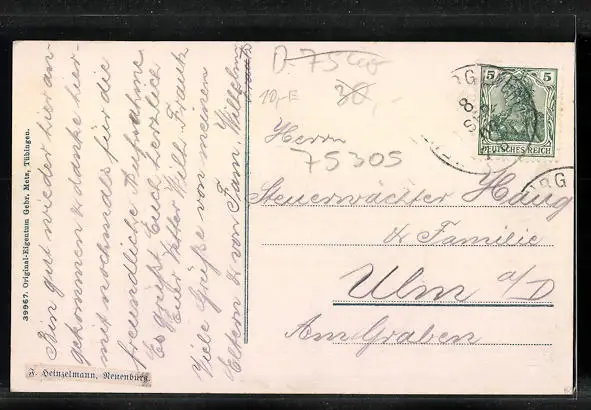 Bin gut wieder hier an-
gekommen & danke hier-
mit nochmals für die
freundliche Aufnahme
Es grüßt Euch herzlich
Euer Vetter Willi Frank
Viele Grüße von meinen
Eltern & von Fam. Wilhelm
Frank
39967. Original-Eigentum Gebr. Metz, Tübingen.
F. Heinzelmann, Neuenbürg.
D-7540
10,-E
30,-
75305
5 5
DEUTSCHES REICH
Herrn
Steuerwächter Haug
& Familie
Ulm a/D
Am Graben